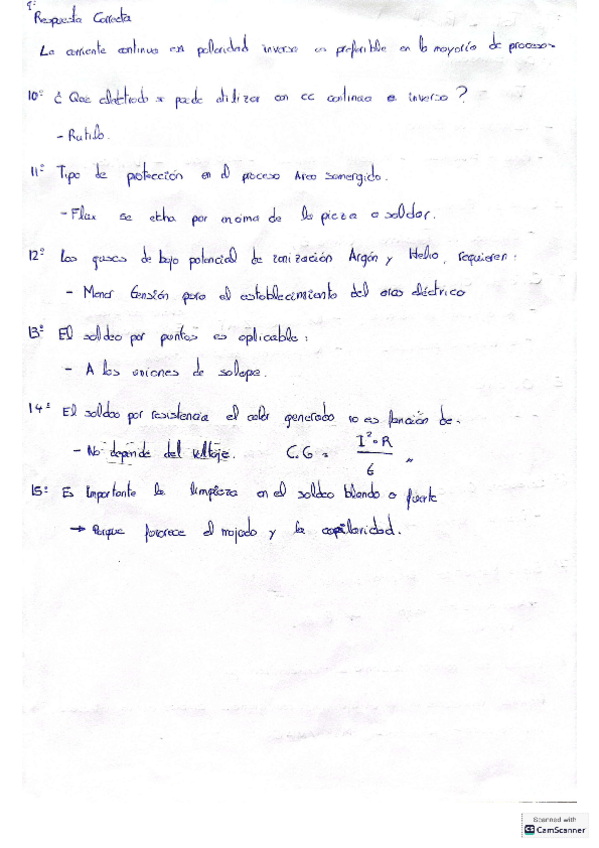 9º
Respuesta Correcta
La corriente continua con polaridad inversa es preferible en la mayoría de procesos
10º ¿ Que electrodo se puede utilizar con cc continua e inverso ?
- Rutilo.
11º Tipo de protección en el proceso Arco sumergido.
- Flux se echa por encima de la pieza a soldar.
12º Los gases de bajo potencial de ionización Argón y Helio, requieren :
- Menor tensión para el establecimiento del arco eléctrico
13º El soldeo por puntos es aplicable :
- A las uniones de solape.
14º El soldeo por resistencia el calor generado no es función de.
- No depende del voltaje. C.G = I²·R / 6 "
15º Es importante la limpieza en el soldeo blando o fuerte
→ Porque favorece el mojado y la capilaridad.
Scanned with
CS CamScanner